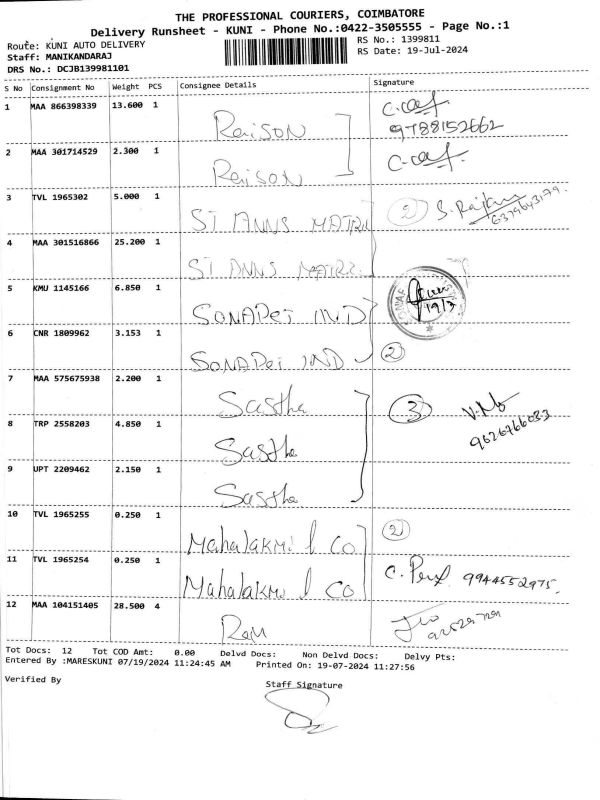 THE PROFESSIONAL COURIERS, COIMBATORE
Delivery Runsheet - KUNI - Phone No.:0422-3505555 - Page No.:1
Route: KUNI AUTO DELIVERY
RS No.: 1399811
Staff: MANIKANDARAJ
RS Date: 19-Jul-2024
DRS No.: DCJB139981101
S No Consignment No Weight PCS Consignee Details Signature
1 MAA 866398339 13.600 1 Raison
9788152662
2 MAA 301714529 2.300 1 Raison
3 TVL 1965302 5.000 1 ST ANNS MATRI (2) S. Rajkum
6379643179.
4 MAA 301516866 25.200 1 ST ANNS MATRI
5 KMU 1145166 6.850 1 SONAPet IND
19/7
6 CNR 1809962 3.153 1 SONAPet IND (2)
7 MAA 575675938 2.200 1 Sastha (3)
8 TRP 2558203 4.850 1 Sastha
9626766033
9 UPT 2209462 2.150 1 Sastha
10 TVL 1965255 0.250 1 MahalaKMi & CO (2)
11 TVL 1965254 0.250 1 MahalaKMi & CO 9944552975.
12 MAA 104151405 28.500 4 Ram
Tot Docs: 12 Tot COD Amt: 0.00 Delvd Docs: Non Delvd Docs: Delvy Pts:
Entered By :MARESKUNI 07/19/2024 11:24:45 AM Printed On: 19-07-2024 11:27:56
Verified By
Staff Signature